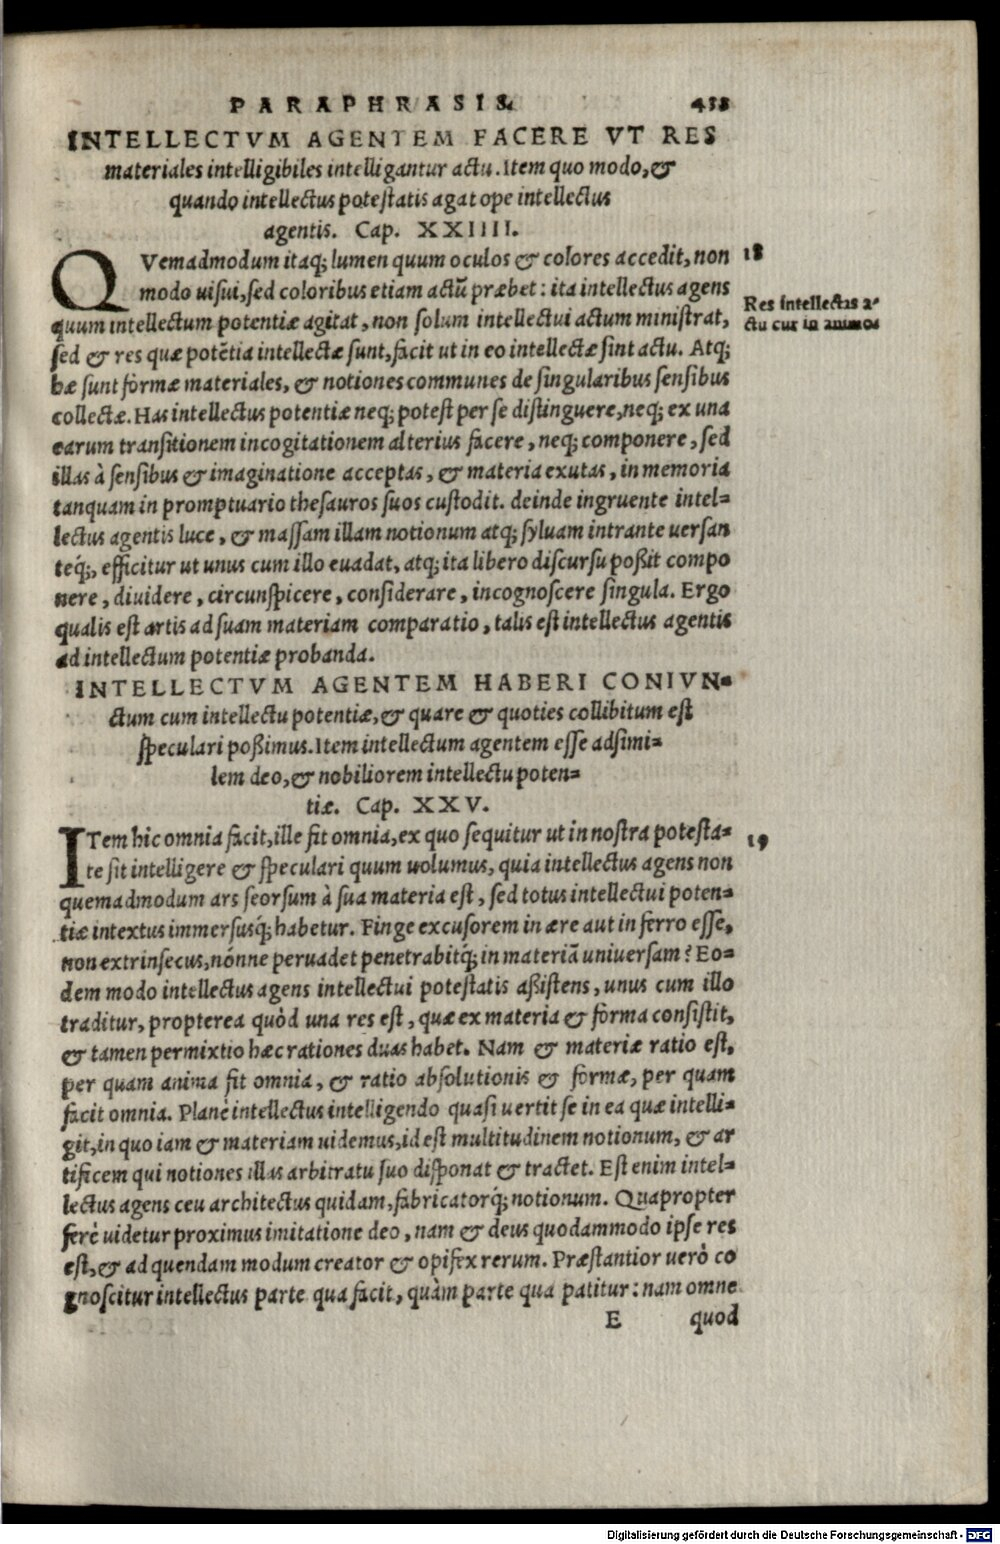 PARAPHRASIS. 433
INTELLECTVM AGENTEM FACERE VT RES
materiales intelligibiles intelligantur actu. Item quo modo, &
quando intellectus potestatis agat ope intellectus
agentis. Cap. XXIIII.
QVemadmodum itaq; lumen quum oculos & colores accedit, non 18
modo uisui, sed coloribus etiam actũ præbet: ita intellectus agens
Res intellectas a-
ctu cur in animos
quum intellectum potentiæ agitat, non solum intellectui actum ministrat,
sed & res quæ potẽtia intellectæ sunt, facit ut in eo intellectæ sint actu. Atq;
hæ sunt formæ materiales, & notiones communes de singularibus sensibus
collectæ. Has intellectus potentiæ neq; potest per se distinguere, neq; ex una
earum transitionem incogitationem alterius facere, neq; componere, sed
illas à sensibus & imaginatione acceptas, & materia exutas, in memoria
tanquam in promptuario thesauros suos custodit. deinde ingruente intel-
lectus agentis luce, & massam illam notionum atq; syluam intrante uersan
teq́;, efficitur ut unus cum illo euadat, atq; ita libero discursu poßit compo
nere, diuidere, circunspicere, considerare, incognoscere singula. Ergo
qualis est artis ad suam materiam comparatio, talis est intellectus agentis
ad intellectum potentiæ probanda.
INTELLECTVM AGENTEM HABERI CONIVN-
ctum cum intellectu potentiæ, & quare & quoties collibitum est
speculari poßimus. Item intellectum agentem esse adsimi-
lem deo, & nobiliorem intellectu poten-
tiæ. Cap. XXV.
ITem hic omnia facit, ille fit omnia, ex quo sequitur ut in nostra potesta- 19
te sit intelligere & speculari quum uolumus, quia intellectus agens non
quemadmodum ars seorsum à sua materia est, sed totus intellectui poten-
tiæ intextus immersusq́; habetur. Finge excusorem in ære aut in ferro esse,
non extrinsecus, nónne peruadet penetrabitq́; in materiã uniuersam? Eo-
dem modo intellectus agens intellectui potestatis aßistens, unus cum illo
traditur, propterea quòd una res est, quæ ex materia & forma consistit,
& tamen permixtio hæc rationes duas habet. Nam & materiæ ratio est,
per quam anima fit omnia, & ratio absolutionis & formæ, per quam
facit omnia. Planè intellectus intelligendo quasi uertit se in ea quæ intelli-
git, in quo iam & materiam uidemus, id est multitudinem notionum, & ar
tificem qui notiones illas arbitratu suo disponat & tractet. Est enim intel-
lectus agens ceu architectus quidam, fabricatorq́; notionum. Quapropter
ferè uidetur proximus imitatione deo, nam & deus quodammodo ipse res
est, & ad quendam modum creator & opifex rerum. Præstantior uerò co
gnoscitur intellectus parte qua facit, quàm parte qua patitur: nam omne
E quod
Digitalisierung gefördert durch die Deutsche Forschungsgemeinschaft - DFG